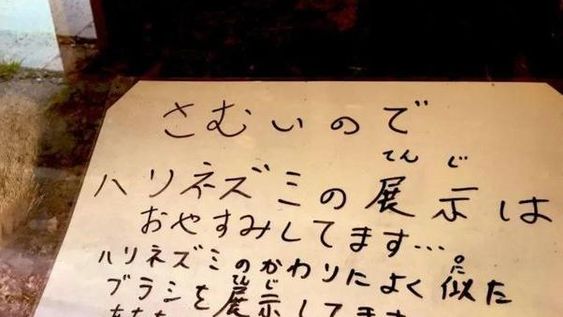 さむいので
てんじ
ハリネズミの展示は
おやすみしてます…
ハリネズミのかわりによく似た
ブラシを展示してます